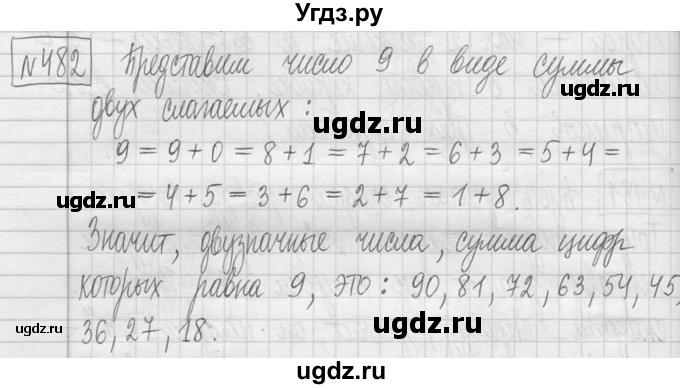 Угдз.ру
№482 Представим число 9 в виде суммы
ugdz.ru
двух слагаемых:
ugdz.ru
9 = 9 + 0 = 8 + 1 = 7 + 2 = 6 + 3 = 5 + 4 =
ugdz.ru
= 4 + 5 = 3 + 6 = 2 + 7 = 1 + 8.
ugdz.ru
ugdz.ru
Значит, двузначные числа, сумма цифр
ugdz.ru
которых равна 9, это: 90, 81, 72, 63, 54, 45,
ugdz.ru
ugdz.ru
ugdz.ru
36, 27, 18.
ugdz.ru